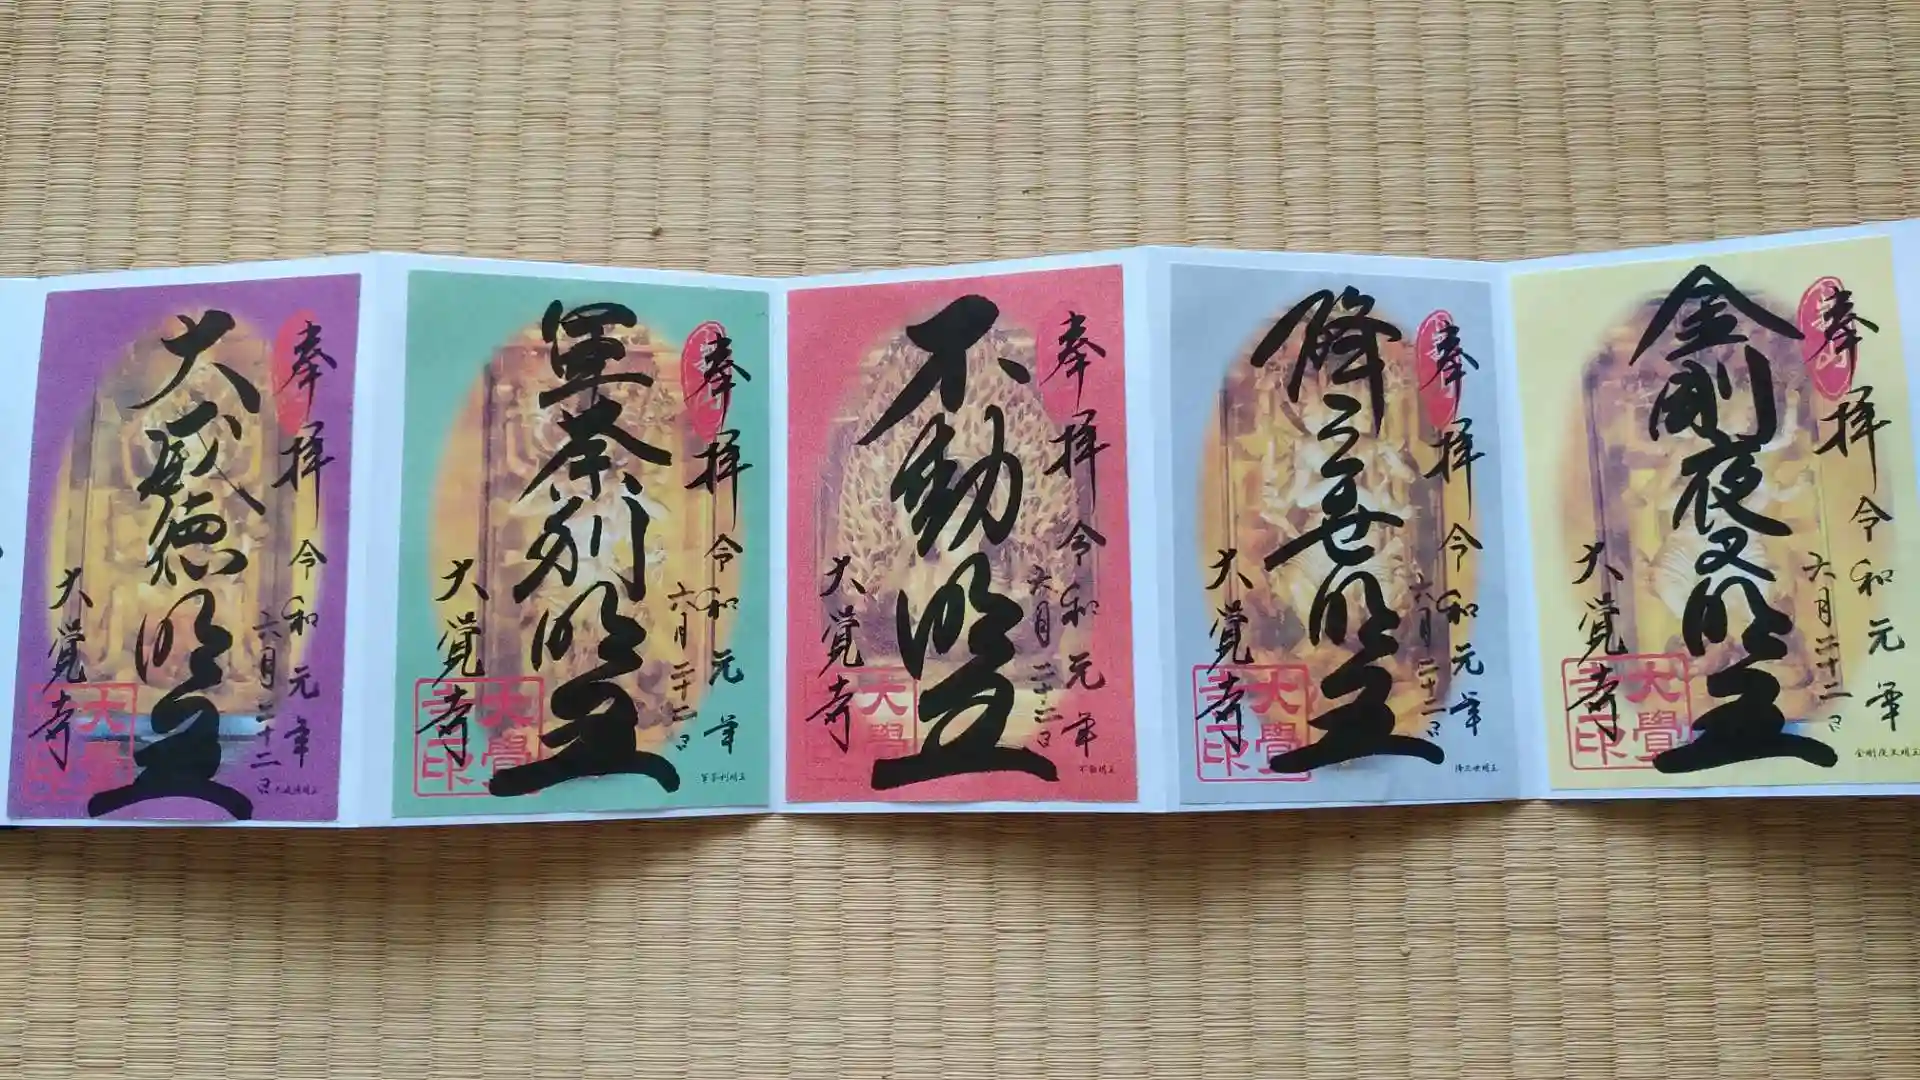 奉拝 令和元年
六月二十二日
金剛夜叉明王
大覚寺
大覺寺印
金剛夜叉明王
奉拝 令和元年
六月二十二日
降三世明王
大覚寺
大覺寺印
降三世明王
奉拝 令和元年
六月二十二日
不動明王
大覚寺
大覺
不動明王
奉拝 令和元年
六月二十二日
軍荼利明王
大覚寺
大覺寺印
軍荼利明王
奉拝 令和元年
六月二十二日
大威徳明王
大覚寺
大覺寺印
大威徳明王